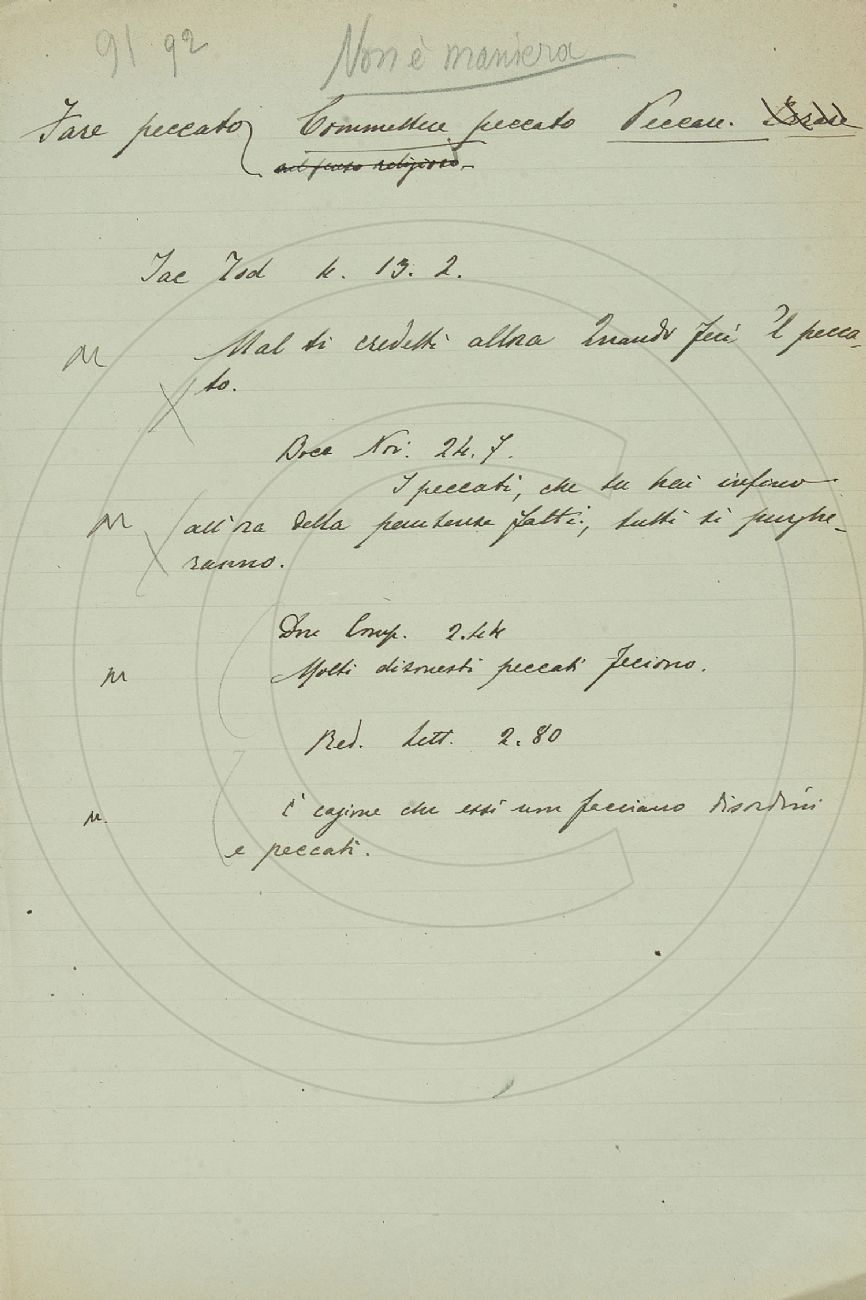 91 92
Non è maniera
Fare peccato Commettere peccato Peccare.
nel senso religioso
Iac Tod 4. 13. 2.
M Mal ti credetti allora Quando feci 'l pecca-
to.
Bocc Nov. 24. 7.
I peccati, che tu hai infino
M all'ora della penitenza fatti, tutti si purghe-
ranno.
Din Comp. 2.44
M Molti disonesti peccati feciono.
Red. Lett. 2.80
M. È cagione che essi non facciano disordini
e peccati.